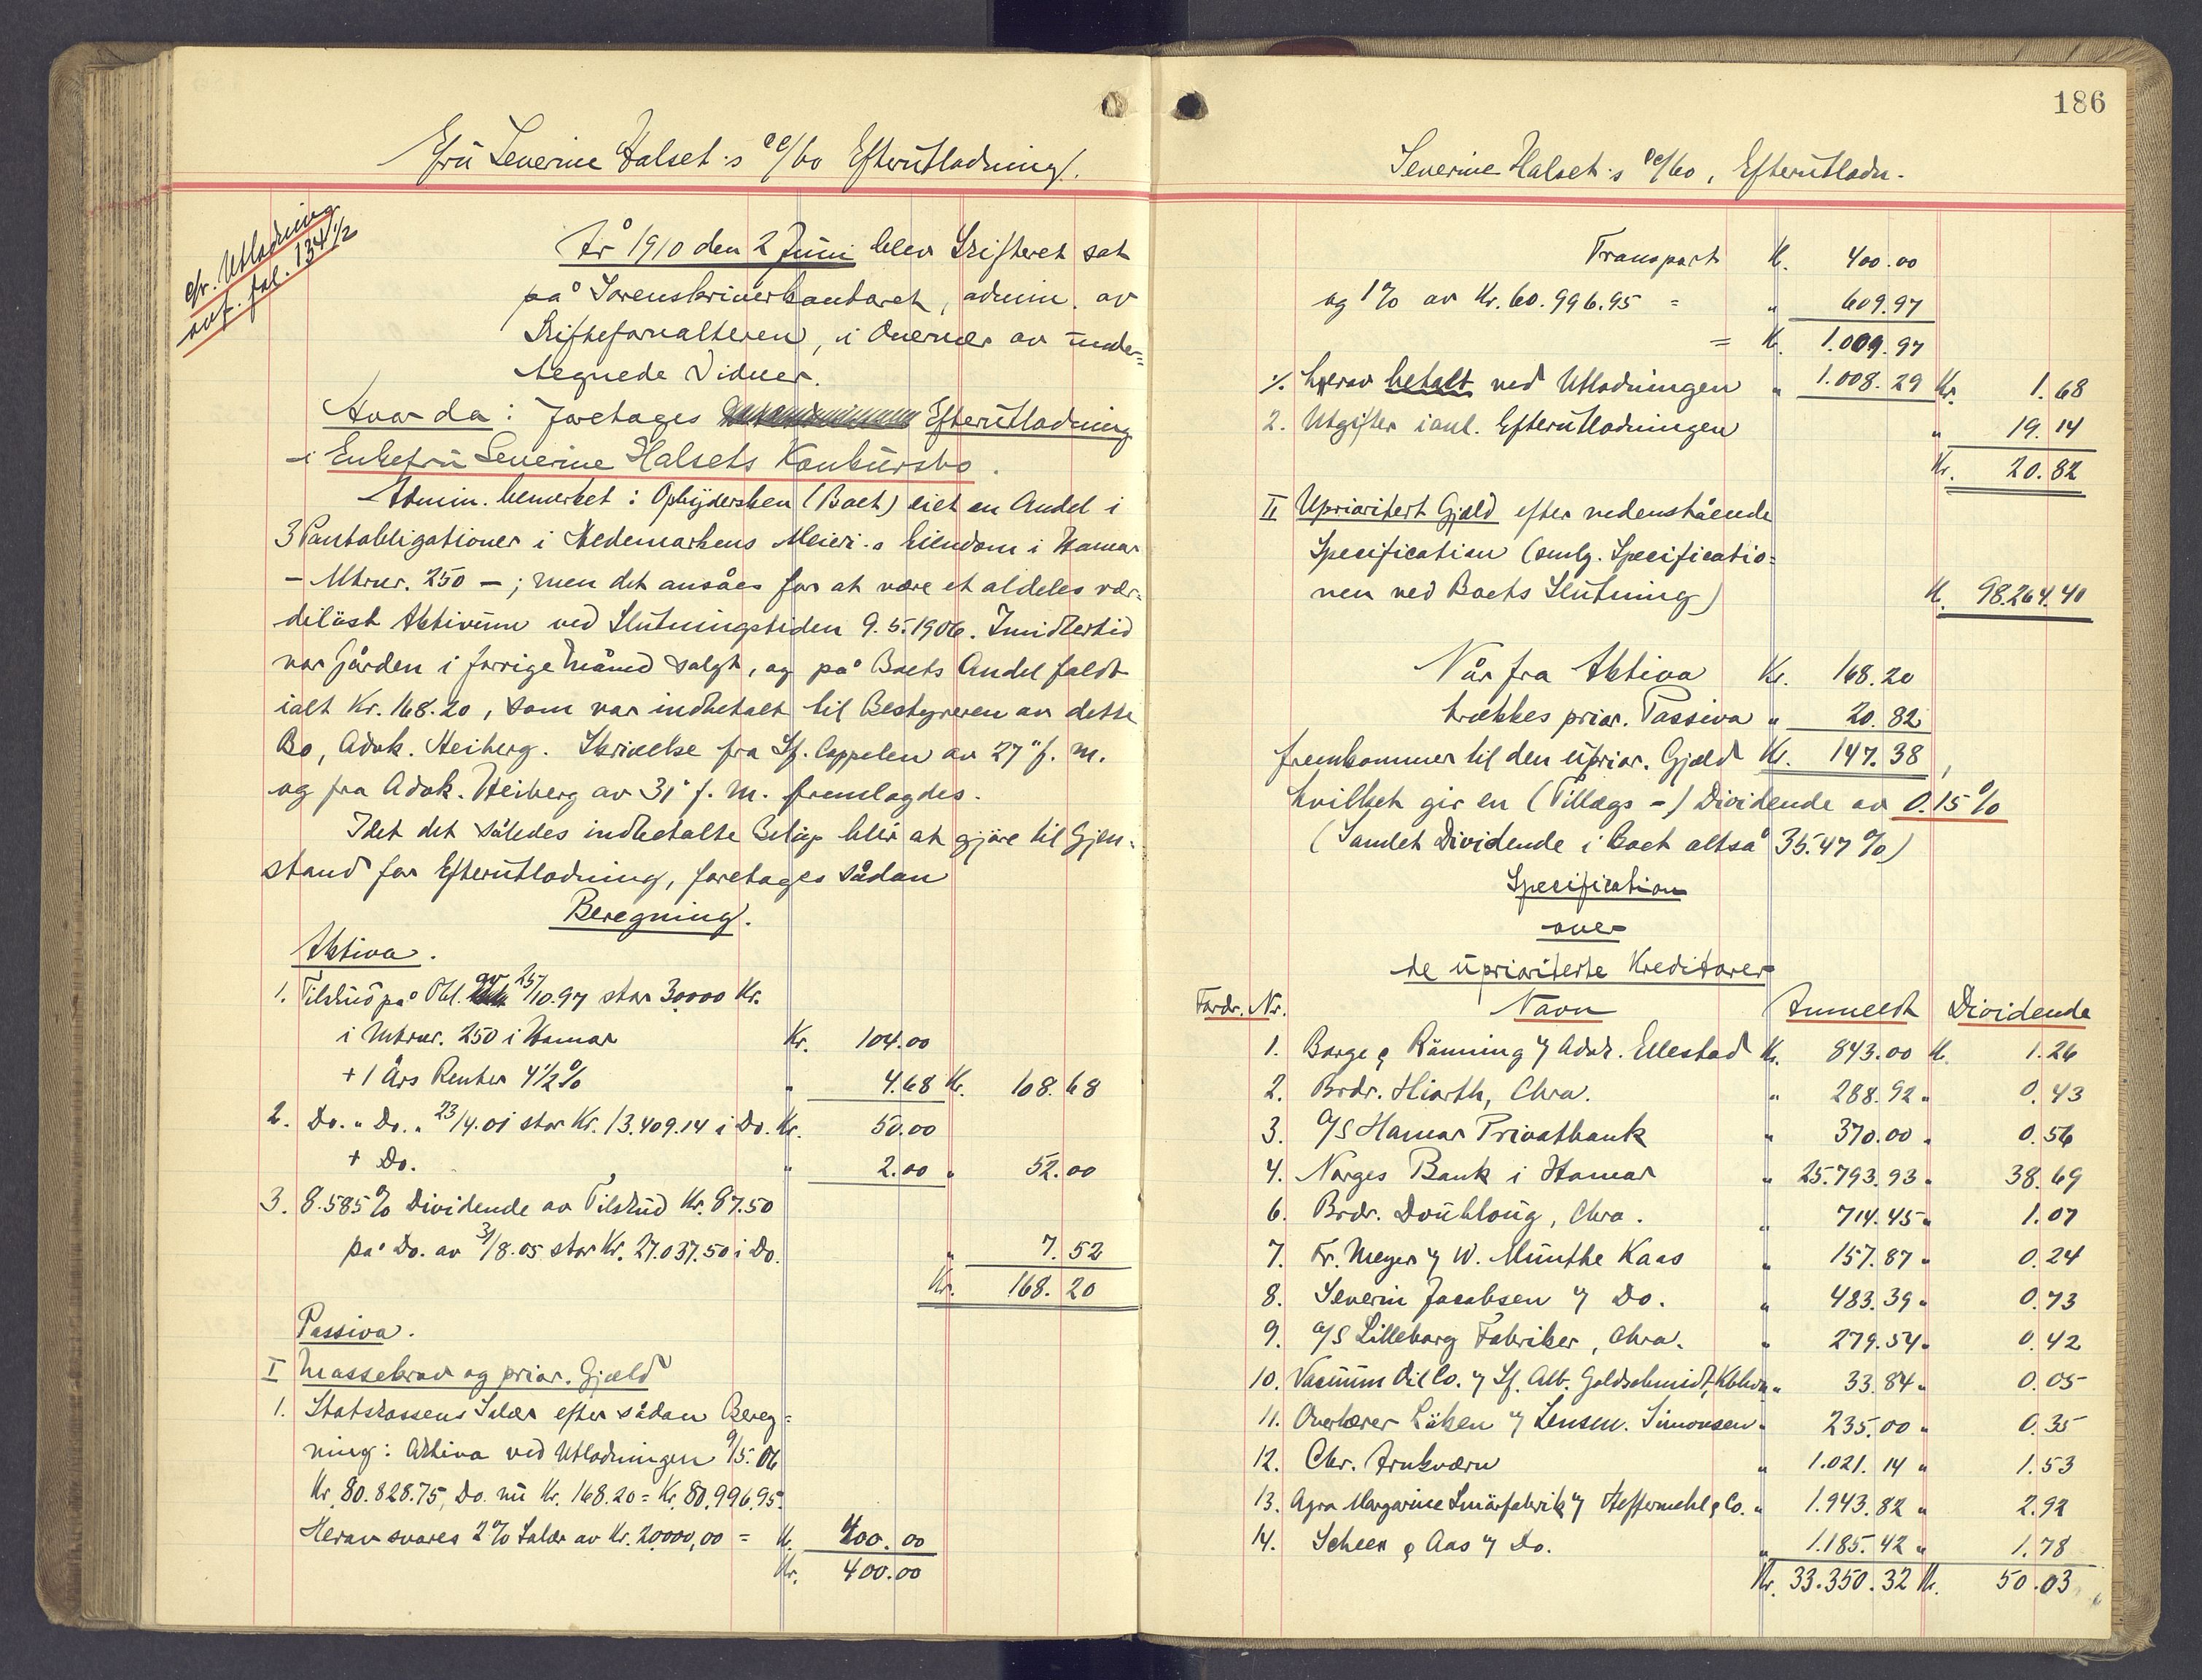 Fru Severine Halset:s cc/bo Efterutlodning.
cfr. Utlodning
anf. fol. 134 1/2
År 1910 den 2 Juni blev Skifteret sat
på Sorenskriverkontoret, admin. av
Skifteforvalteren, i Overvær av under-
tegnede Vidner.
Hvor da: foretages Efterutlodning
i Enkefru Severine Halsets Konkursbo.
Admin. bemerket: Opbydersken (Boet) eiet en Andel i
3 Pantobligationer i Hedemarkens Meieri:s Eiendom i Hamar
– Mtrnr. 250 –; men det ansåes for at være et aldeles vær-
diløst Aktivum ved Slutningstiden 9.5.1906. Imidlertid
var Gården i forrige Måned solgt, og på Boets Andel faldt
ialt Kr. 168.20, som var indbetalt til Bestyreren av dette
Bo, Advk. Heiberg. Skrivelse fra Sf. Cappelen av 27' f. M.
og fra Advk. Heiberg av 31' f. M. fremlagdes.
Idet det således indbetalte Beløp blir at gjøre til Gjen-
stand for Efterutlodning, foretages sådan
Beregning.
Aktiva.
1. Tilskud på Obl. av 25/10.97 stor 30000 Kr.
i Mtrnr. 250 i Hamar Kr. 104.00
+ 1 Års Renter 4 1/2 % " 4.68 Kr. 108.68
2. Do. " Do. " 23/4.01 stor Kr. 13.409.14 i Do. Kr. 50.00
+ Do. " 2.00 " 52.00
3. 8.585 % Dividende av Tilskud Kr. 87.50
på Do. av 31/8.05 stor Kr. 27.037.50 i Do. " 7.52
Kr. 168.20
Passiva.
I Massekrav og prior. Gjæld
1. Statskassens Salær efter sådan Bereg-
ning: Aktiva ved Utlodningen 9/5.06
Kr. 80.828.75, Do. nu Kr. 168.20 = Kr. 80.996.95.
Herav svares 2 % Salær av Kr. 20000,00 = K. 400.00
Kr. 400.00
186
Severine Halset:s cc/bo, Efterutlodn.
Transport K. 400.00
og 1 % av Kr. 60.996.95 = " 609.97
= K. 1.009.97
./. herav betalt ved Utlodningen " 1.008.29 Kr. 1.68
2. Utgifter i anl. Efterutlodningen " 19.14
Kr. 20.82
II Uprioritert Gjæld efter nedenstående
Specification (smlg. Specificatio-
nen ved Boets Slutning) K. 98.264.40
Når fra Aktiva Kr. 168.20
trækkes prior. Passiva " 20.82
fremkommer til den uprior. Gjæld Kr. 147.38,
hvilket gir en (Tillægs-) Dividende av 0.15 %
(Samlet Dividende i Boet altså 35.47 %)
Specification
over
de uprioriterte Kreditorer
Fordr. Nr. Navn Anmeldt Dividende
1. Borge & Rønning v/ Advk. Ellestad Kr. 843.00 K. 1.26
2. Brdr. Hiorth, Chra. " 288.92 " 0.43
3. A/S Hamar Privatbank " 370.00 " 0.56
4. Norges Bank i Hamar " 25.793.93 " 38.69
6. Brdr. Doubloug, Chra. " 714.45 " 1.07
7. Fr. Meyer v/ W. Munthe Kaas " 157.87 " 0.24
8. Severin Jacobsen v/ Do. " 483.39 " 0.73
9. A/S Lilleborg Fabriker, Chra. " 279.54 " 0.42
10. Vacuum Oil Co. v/ Sf. Alb. Goldschmidt, Kbhvn " 33.84 " 0.05
11. Overlærer Løken v/ Lensm. Simonsen " 235.00 " 0.35
12. Chr. Arnkværn " 1.021.14 " 1.53
13. Agra Margarine Smørfabrik v/ Heffermehl & Co. " 1.943.82 " 2.92
14. Scheen & Aas v/ Do. " 1.185.42 " 1.78
Kr. 33.350.32 K. 50.03